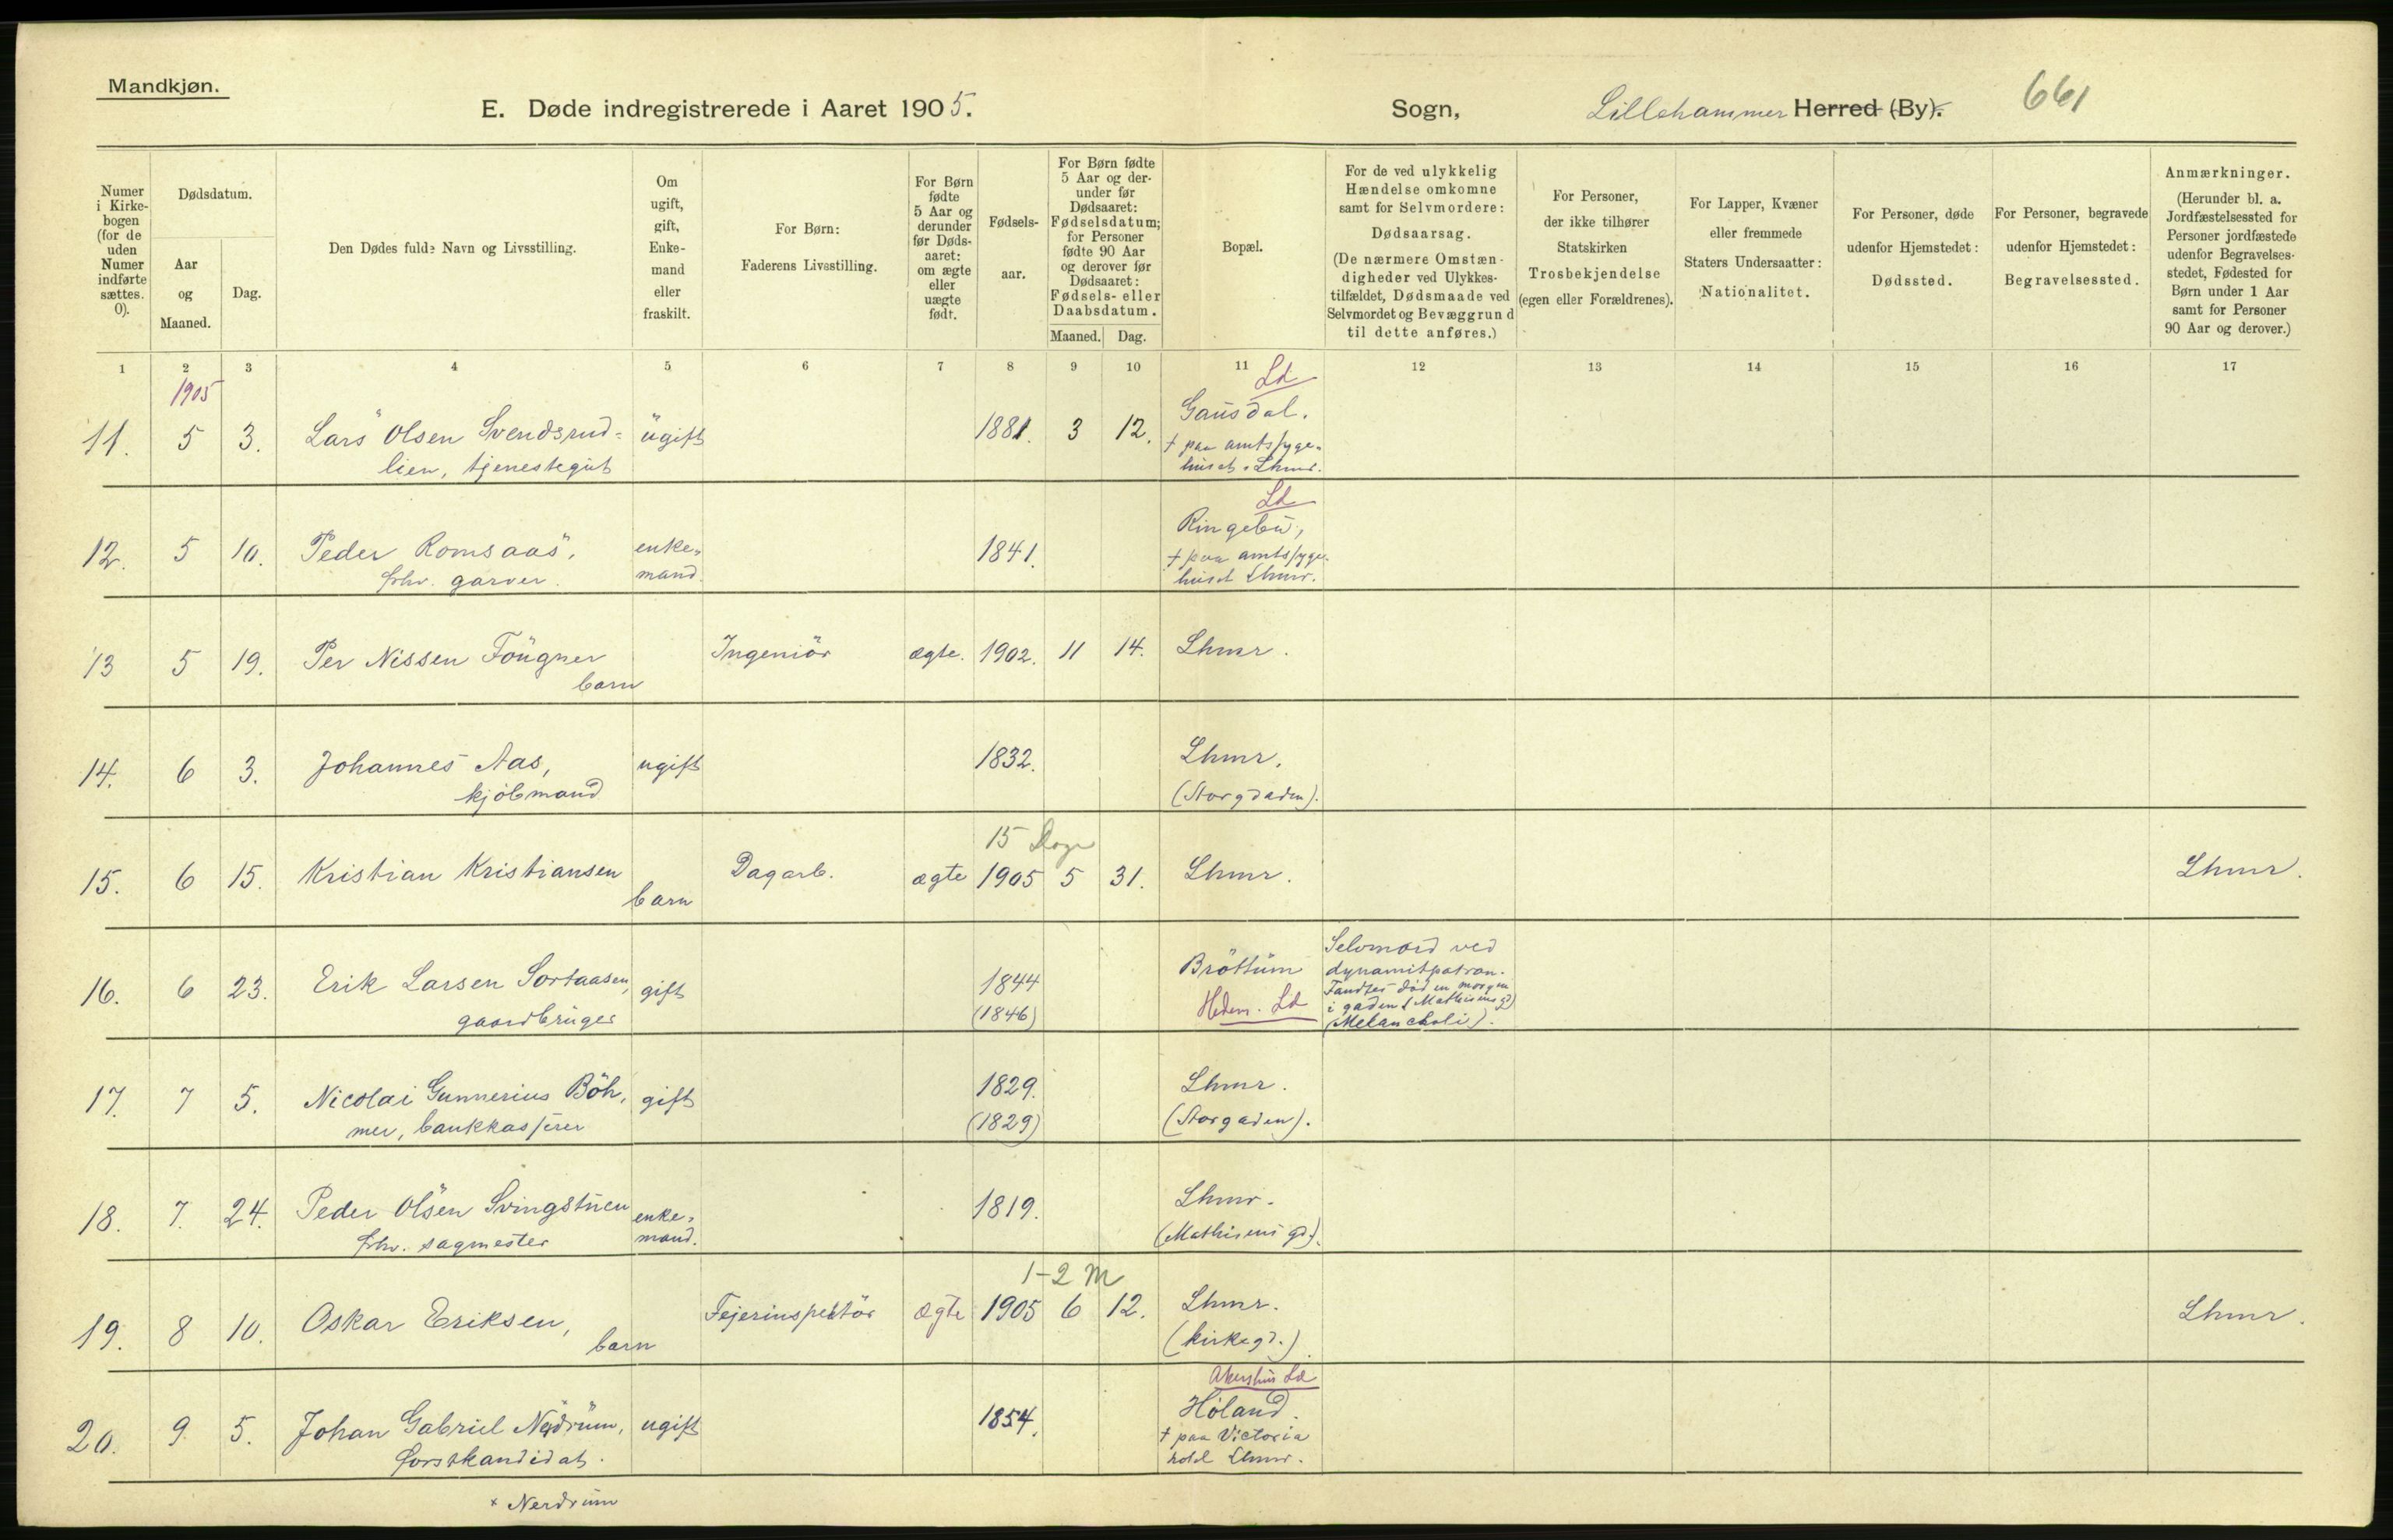 Mandkjøn.
E. Døde indregistrerede i Aaret 1905.
Sogn,
Lillehammer Herred (By).
661
Numer i Kirkebogen (for de uden Numer indførte sættes 0).
Dødsdatum.
Aar og Maaned.
Dag.
Den Dødes fulde Navn og Livsstilling.
Om ugift, gift, Enkemand eller fraskilt.
For Børn: Faderens Livsstilling.
For Børn fødte 5 Aar og derunder før Dødsaaret: om ægte eller uægte født.
Fødselsaar.
For Børn fødte 5 Aar og derunder før Dødsaaret: Fødselsdatum; for Personer fødte 90 Aar og derover før Dødsaaret: Fødsels- eller Daabsdatum.
Maaned. Dag.
Bopæl.
For de ved ulykkelig Hændelse omkomne samt for Selvmordere: Dødsaarsag. (De nærmere Omstændigheder ved Ulykkestilfældet, Dødsmaade ved Selvmordet og Bevæggrund til dette anføres.)
For Personer, der ikke tilhører Statskirken Trosbekjendelse (egen eller Forældrenes).
For Lapper, Kvæner eller fremmede Staters Undersaatter: Nationalitet.
For Personer, døde udenfor Hjemstedet: Dødssted.
For Personer, begravede udenfor Hjemstedet: Begravelsessted.
Anmærkninger. (Herunder bl. a. Jordfæstelsessted for Personer jordfæstede udenfor Begravelsesstedet, Fødested for Børn under 1 Aar samt for Personer 90 Aar og derover.)
1 2 3 4 5 6 7 8 9 10 11 12 13 14 15 16 17
1905
Ld
11. 5 3. Lars Olsen Svendsrud= ugift 1881. 3 12. Gausdal.
lien, tjenestegut
† paa amtssyge-
huset. Lhmr.
Ld
12. 5 10. Peder Romsaas, enke- 1841. Ringebu,
fhv. garver. mand.
† paa amtssyge-
huset Lhmr.
13 5 19. Per Nissen Fougner Ingeniör ægte. 1902. 11 14. Lhmr.
barn
14. 6 3. Johannes Aas, ugift 1832. Lhmr.
kjøbmand (Storgdaden).
15 Dage
15. 6 15. Kristian Kristiansen Dagarb. ægte 1905 5 31. Lhmr. Lhmr.
barn
16. 6 23. Erik Larsen Sortaasen, gift 1844 Bröttum
gaardbruger (1846) Hedem. Ld
Selvmord ved
dynamitpatron.
Fandtes död en morgen
i gaden (Mathisens gd)
(Melancholi).
17. 7 5. Nicolai Gunnerius Böh, gift 1829. Lhmr.
mer, bankkasserer (1829) (Storgaden).
18. 7. 24. Peder Olsen Svingstuen enke- 1819. Lhmr.
fhv. sagmester mand. (Mathisens gd.).
1-2 M
19. 8 10. Oskar Eriksen, Fejerinspektör ægte 1905 6 12. Lhmr. Lhmr.
barn (kirkegd.)
Akershus Ld
20. 9 5. Johan Gabriel Nædrum, ugift 1854. Höland.
forstkandidat.
† paa Victoria
hotel Lhmr.
× Nerdrum